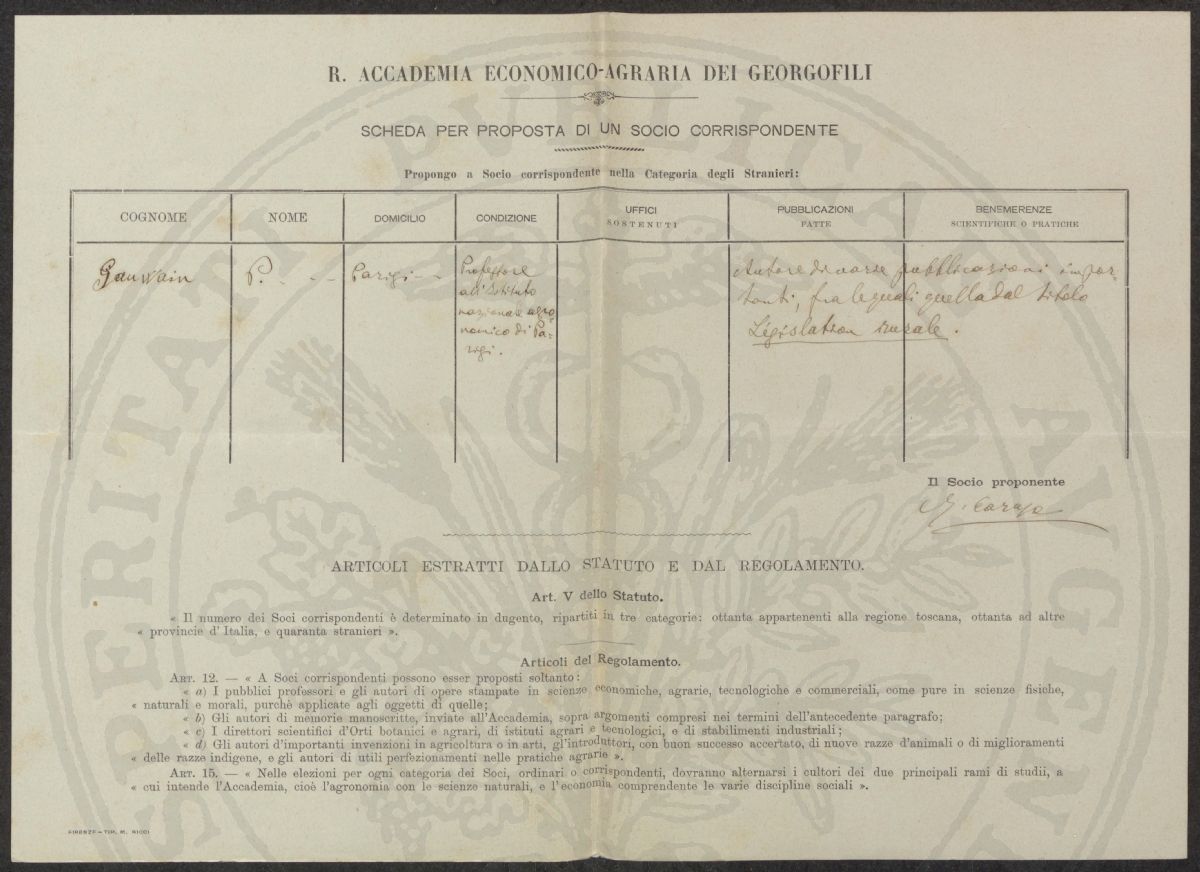 R. ACCADEMIA ECONOMICO-AGRARIA DEI GEORGOFILI
SCHEDA PER PROPOSTA DI UN SOCIO CORRISPONDENTE
Propongo a Socio corrispondente nella Categoria degli Stranieri:
COGNOME
NOME
DOMICILIO
CONDIZIONE
UFFICI
SOSTENUTI
PUBBLICAZIONI
FATTE
BENEMERENZE
SCIENTIFICHE O PRATICHE
Gauwain
P.
Parigi
Professore
all'Istituto
nazionale agro-
nomico di Pa-
rigi.
Autore di varie pubblicazioni impor-
tanti, fra le quali quella dal titolo
Législation rurale.
Il Socio proponente
ARTICOLI ESTRATTI DALLO STATUTO E DAL REGOLAMENTO.
Art. V dello Statuto.
« Il numero dei Soci corrispondenti è determinato in dugento, ripartiti in tre categorie: ottanta appartenenti alla regione toscana, ottanta ad altre
« provincie d'Italia, e quaranta stranieri ».
Articoli del Regolamento.
ART. 12. — « A Soci corrispondenti possono esser proposti soltanto:
« a) I pubblici professori e gli autori di opere stampate in scienze economiche, agrarie, tecnologiche e commerciali, come pure in scienze fisiche,
« naturali e morali, purchè applicate agli oggetti di quelle;
« b) Gli autori di memorie manoscritte, inviate all'Accademia, sopra argomenti compresi nei termini dell'antecedente paragrafo;
« c) I direttori scientifici d'Orti botanici e agrari, di istituti agrari e tecnologici, e di stabilimenti industriali;
« d) Gli autori d'importanti invenzioni in agricoltura o in arti, gl'introduttori, con buon successo accertato, di nuove razze d'animali o di miglioramenti
« delle razze indigene, e gli autori di utili perfezionamenti nelle pratiche agrarie ».
ART. 15. — « Nelle elezioni per ogni categoria dei Soci, ordinari o corrispondenti, dovranno alternarsi i cultori dei due principali rami di studii, a
« cui intende l'Accademia, cioè l'agronomia con le scienze naturali, e l'economia comprendente le varie discipline sociali ».
FIRENZE—TIP. M. RICCI